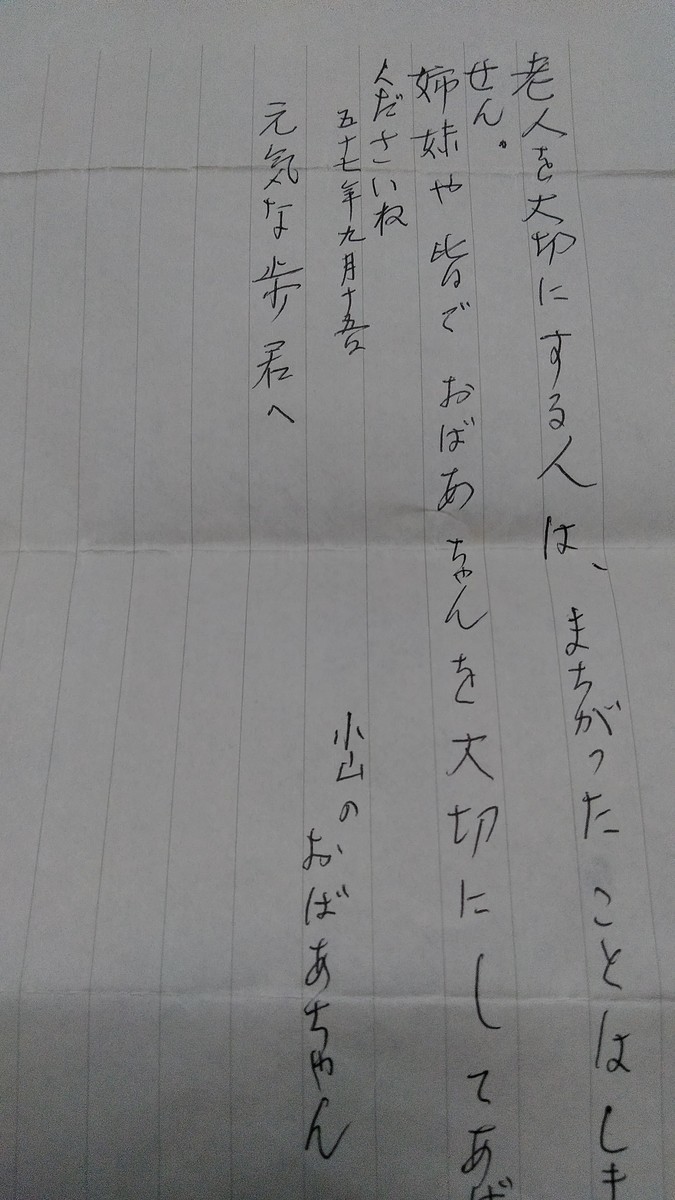 老人を大切にする人は、まちがったことはしま
せん。
姉妹や皆でおばあちゃんを大切にしてあげ
ください​ね
五十七年九月十五日
小山のおばあちゃん
元気な歩君へ